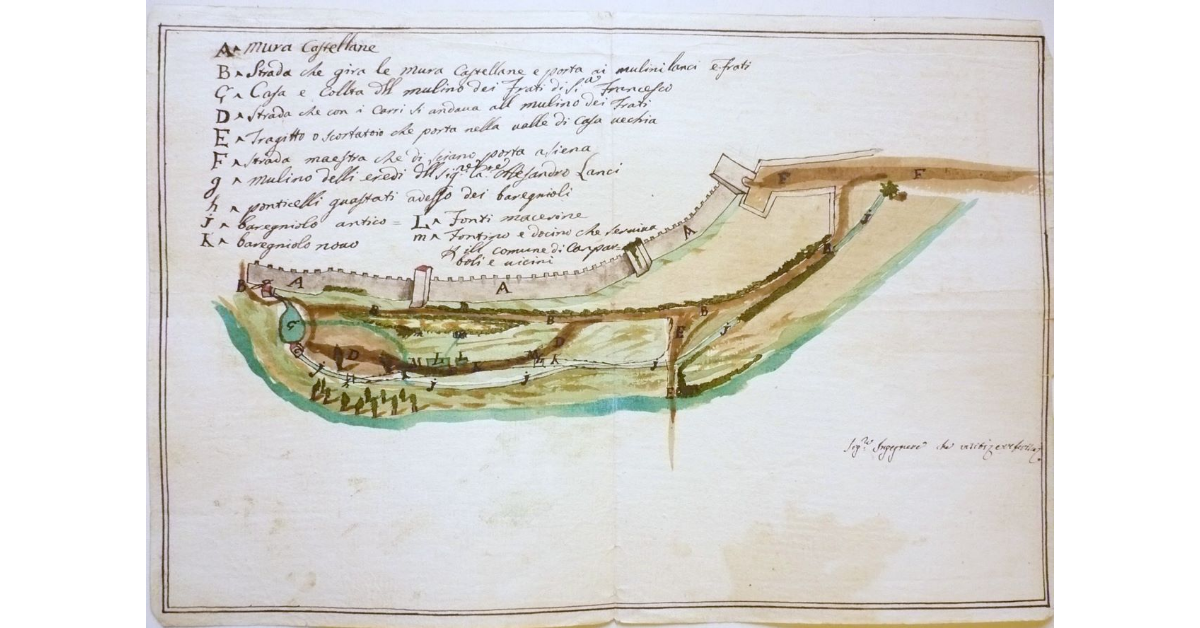 A mura Castellane
B Strada che gira le mura Castellane e porta ai mulini lanci e frati
C Casa e Colta dll mulino dei frati di S.ᵃ Francesco
D Strada che con i Carri si andava all mulino dei frati
E Tragitto o scortatoio che porta nella valle di Casa vechia
F strada maestra che di porta a siena
g mulino delli eredi dll Sig.ʳᵉ Alesandro Lanci
h ponticelli guastati adesso dei baregnioli
j baregniolo antico = L Fonti macerine
K baregniolo novo m Fontino e docino che
ill comune di
boli e vicini
A
A
A
F
F
B
B
B
B
B
E
E
D
D
j
j
j
j
L
L
K
Sig.ʳᵉ che